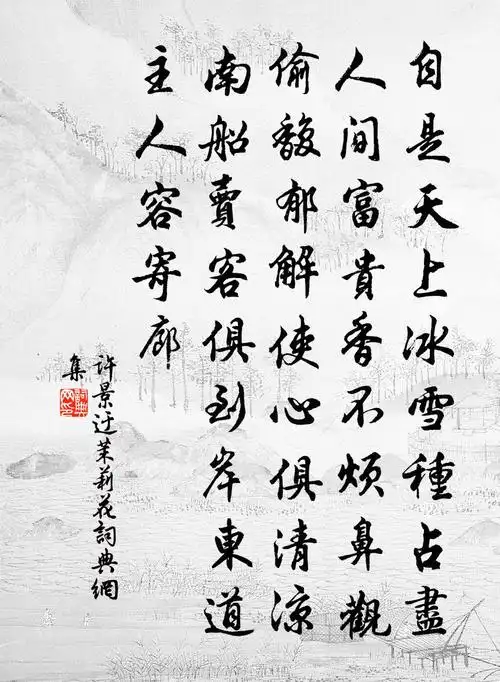 自是天上冰雪種占盡
人間富貴香不煩鼻觀
偷馥郁解使心俱清涼
南船賣客俱到岸東道
主人容寄廊
許景迂茉莉花詞典網
集